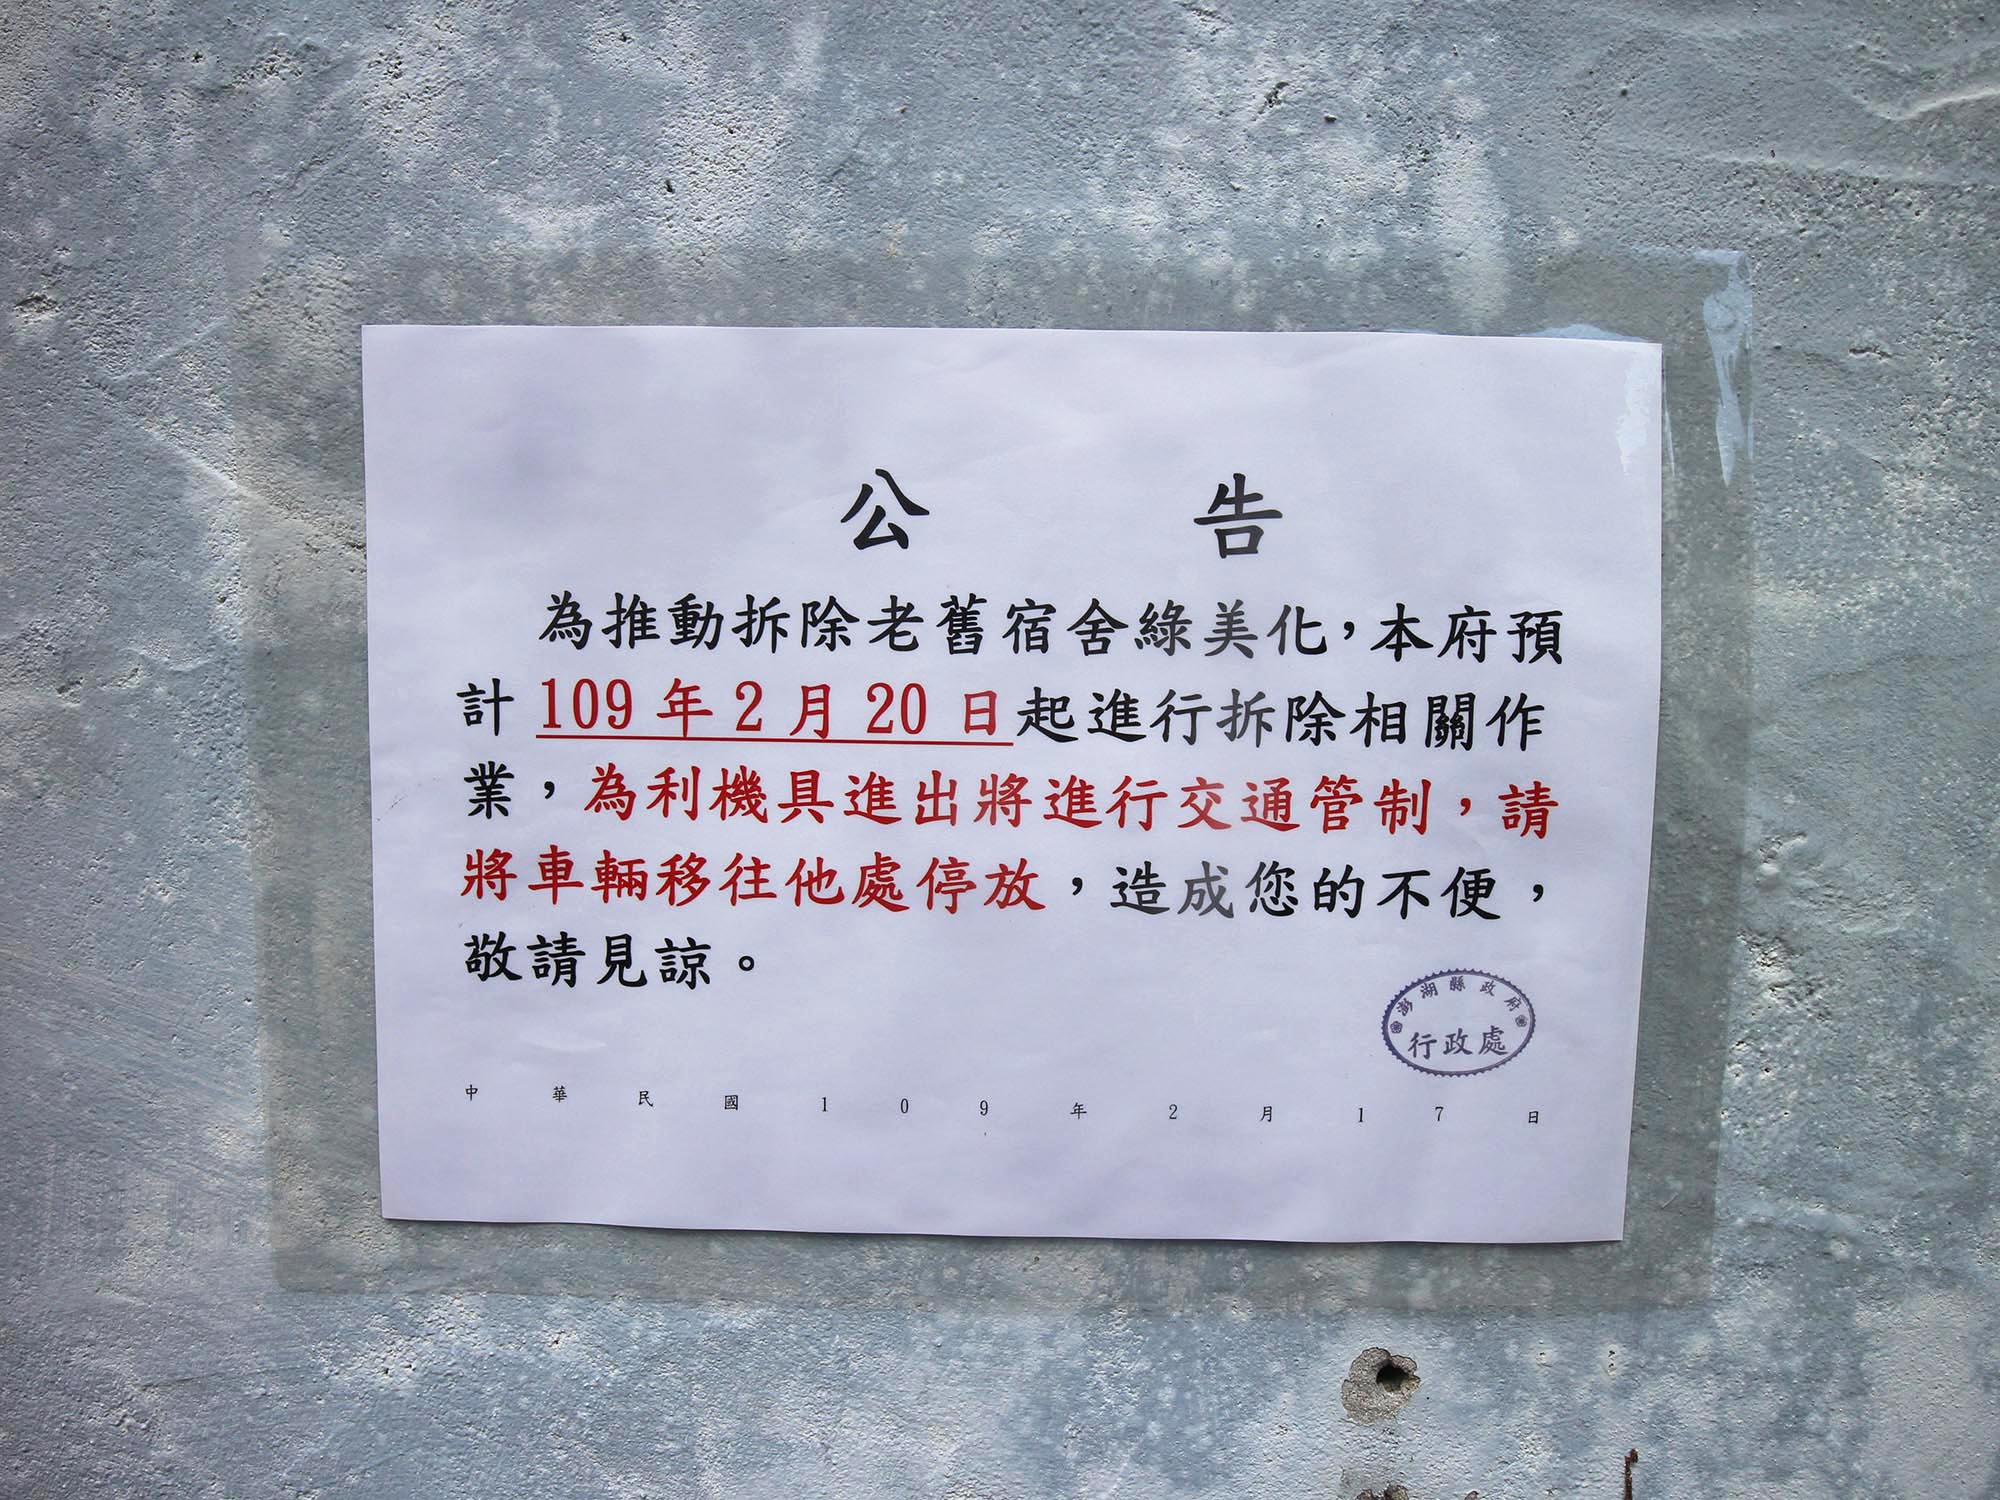 公告
為推動拆除老舊宿舍綠美化，本府預
計109年2月20日起進行拆除相關作
業，為利機具進出將進行交通管制，請
將車輛移往他處停放，造成您的不便，
敬請見諒。
澎湖縣政府
行政處
中華民國109年2月17日